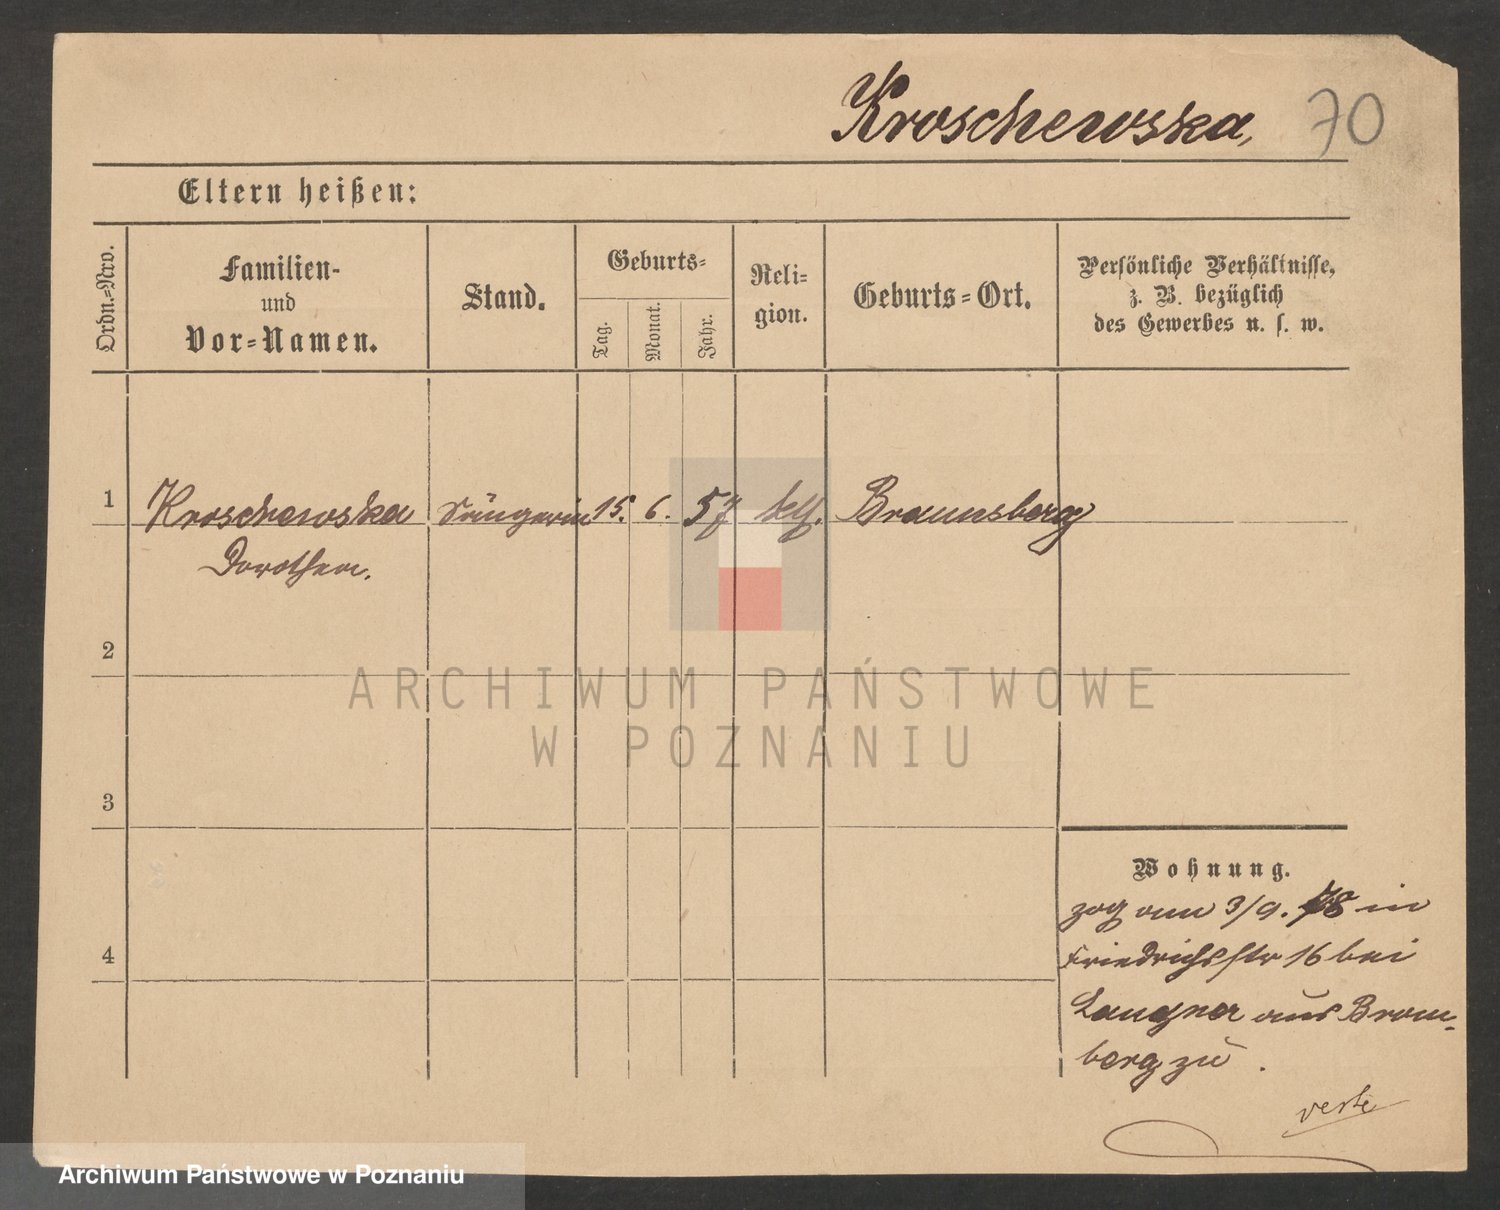 Kroschewska, 70
Eltern heißen:
Ordn.-Nro.
Familien-
und
Vor-Namen.
Stand.
Geburts-
Tag.
Monat.
Jahr.
Reli-
gion.
Geburts-Ort.
Persönliche Verhältnisse,
z. B. bezüglich
des Gewerbes u. s. w.
1 Kroschewska Sängerin 15. 6. 57 kth. Braunsberg
Dorothea.
2
3
4
Wohnung.
zog am 3/9. 78 in
Friedrichsstr 16 bei
Langner aus Brom-
berg zu.
verte
ARCHIWUM PAŃSTWOWE
W POZNANIU
Archiwum Państwowe w Poznaniu